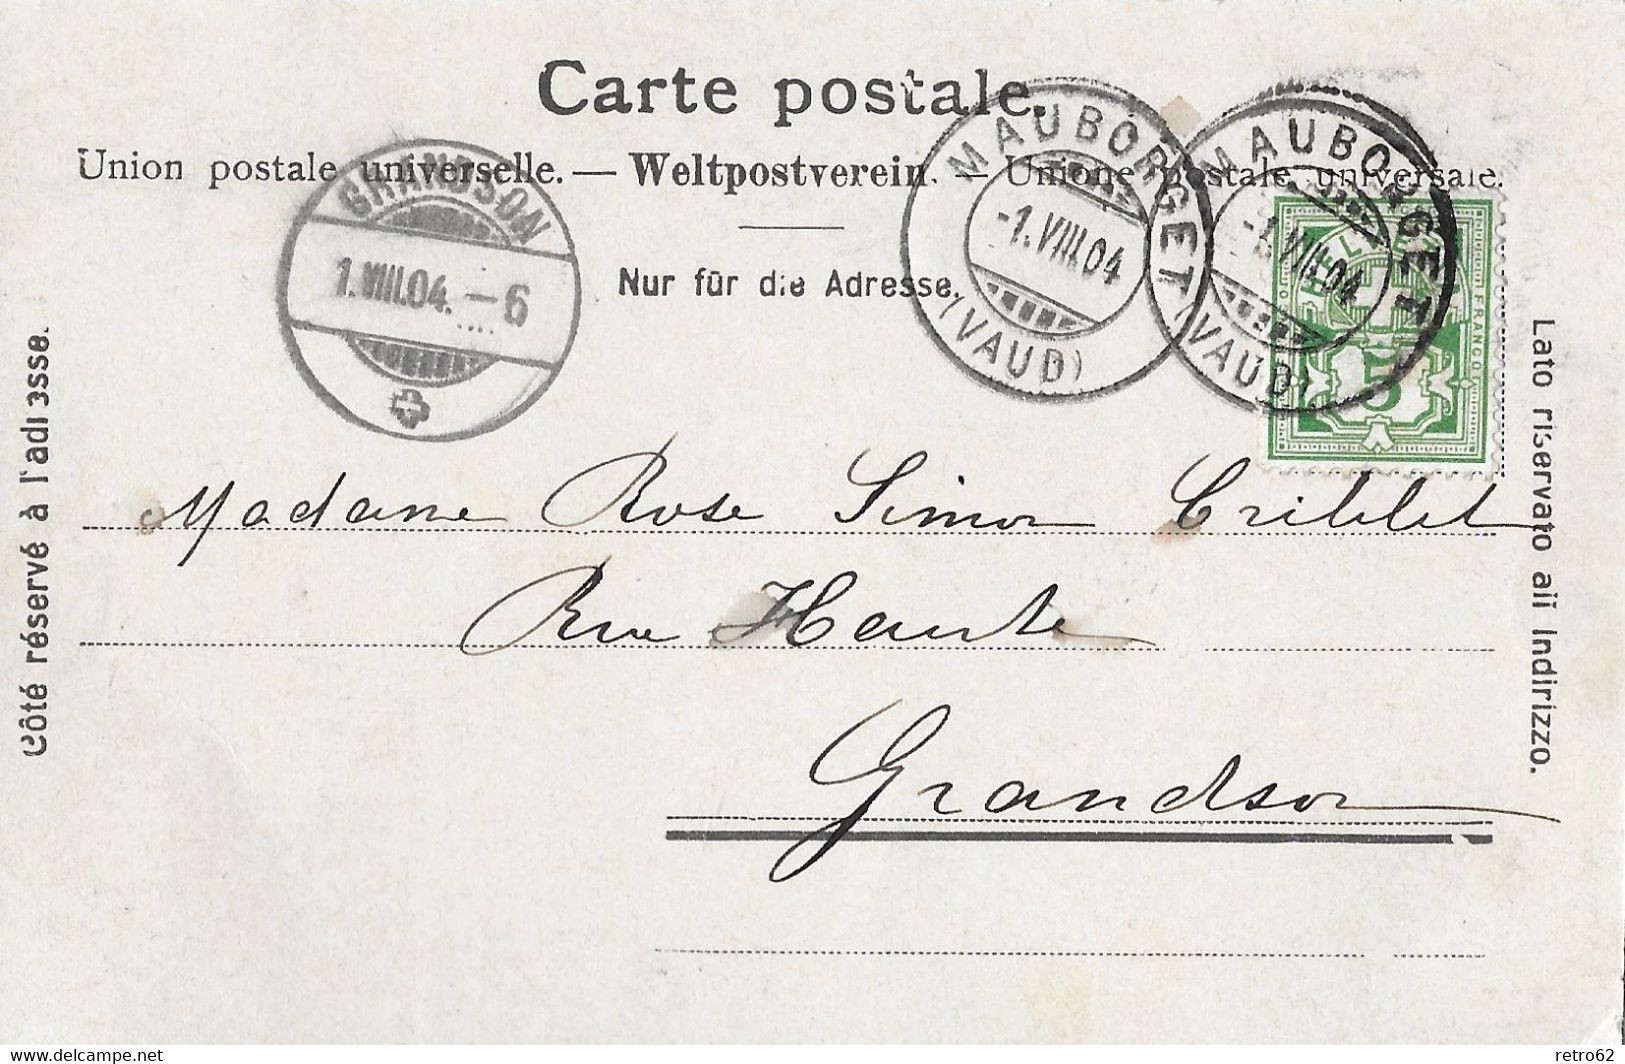 Carte postale.
Union postale universelle. — Weltpostverein. — Unione postale universale.
Nur für die Adresse.
Côté réservé à l'adresse.
Lato riservato all Indirizzo.
GRANDSON
1.VIII.04.—6
MAUBORGET
-1.VIII.04
(VAUD)
MAUBORGET
-1.VIII.04
(VAUD)
FRANCO
5
Madame Rose Simon Criblet
Rue Haute
Grandson
www.delcampe.net
retro62